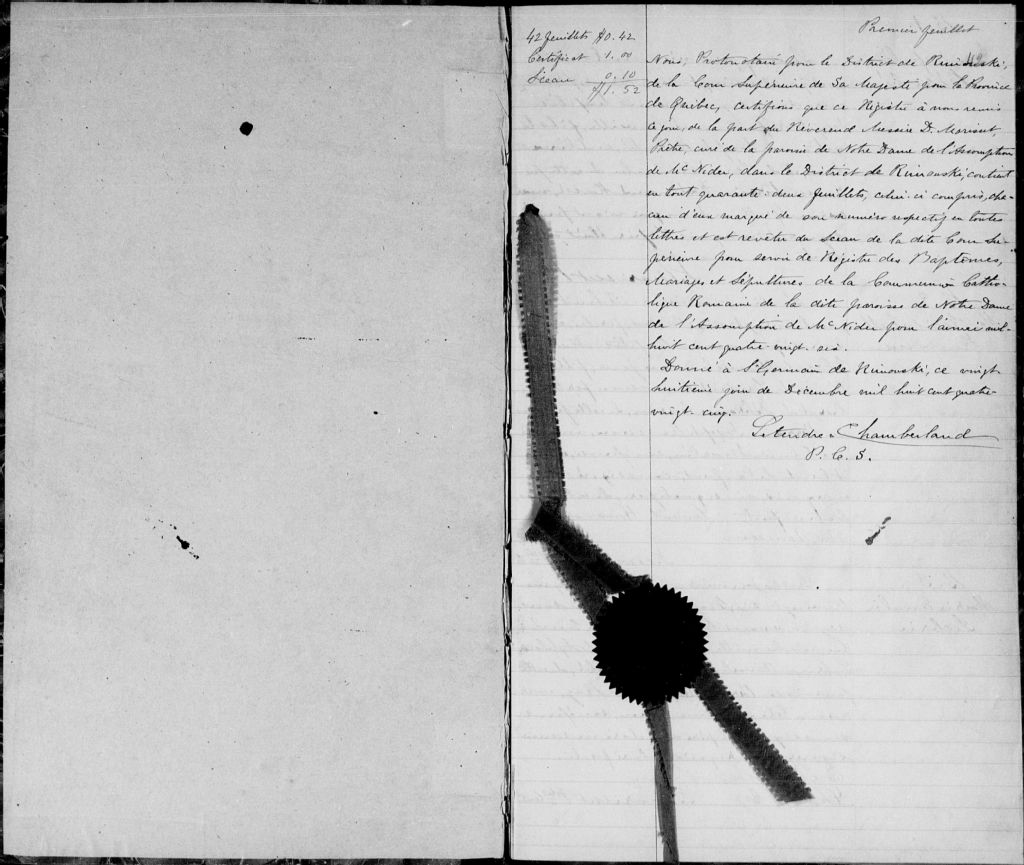 Premier feuillet
42 feuillets $0.42
Certificat 1.00
Sceau 0.10
$1.52
Nous, Protonotaire pour le District de Rimouski,
de la Cour Supérieure de Sa Majesté pour la Province
de Québec, certifions que ce Régistre à nous remis
ce jour, de la part du Révérend Messire D. Morisset,
Prêtre, curé de la paroisse de Notre Dame de l'Assomption
de McNider, dans le District de Rimouski, contient
en tout quarante-deux feuillets, celui-ci compris, cha-
cun d'eux marqué de son numéro respectif en toutes
lettres et est revêtu du Sceau de la dite Cour Su-
périeure pour servir de Régistre des Baptêmes,
Mariages et Sépultures de la Communion Catho-
lique Romaine de la dite paroisse de Notre Dame
de l'Assomption de McNider pour l'année mil-
huit cent quatre-vingt-six.
Donné à St Germain de Rimouski, ce vingt
huitième jour de Décembre mil huit cent quatre-
vingt-cinq.
Letendre & Chamberland
P. C. S.